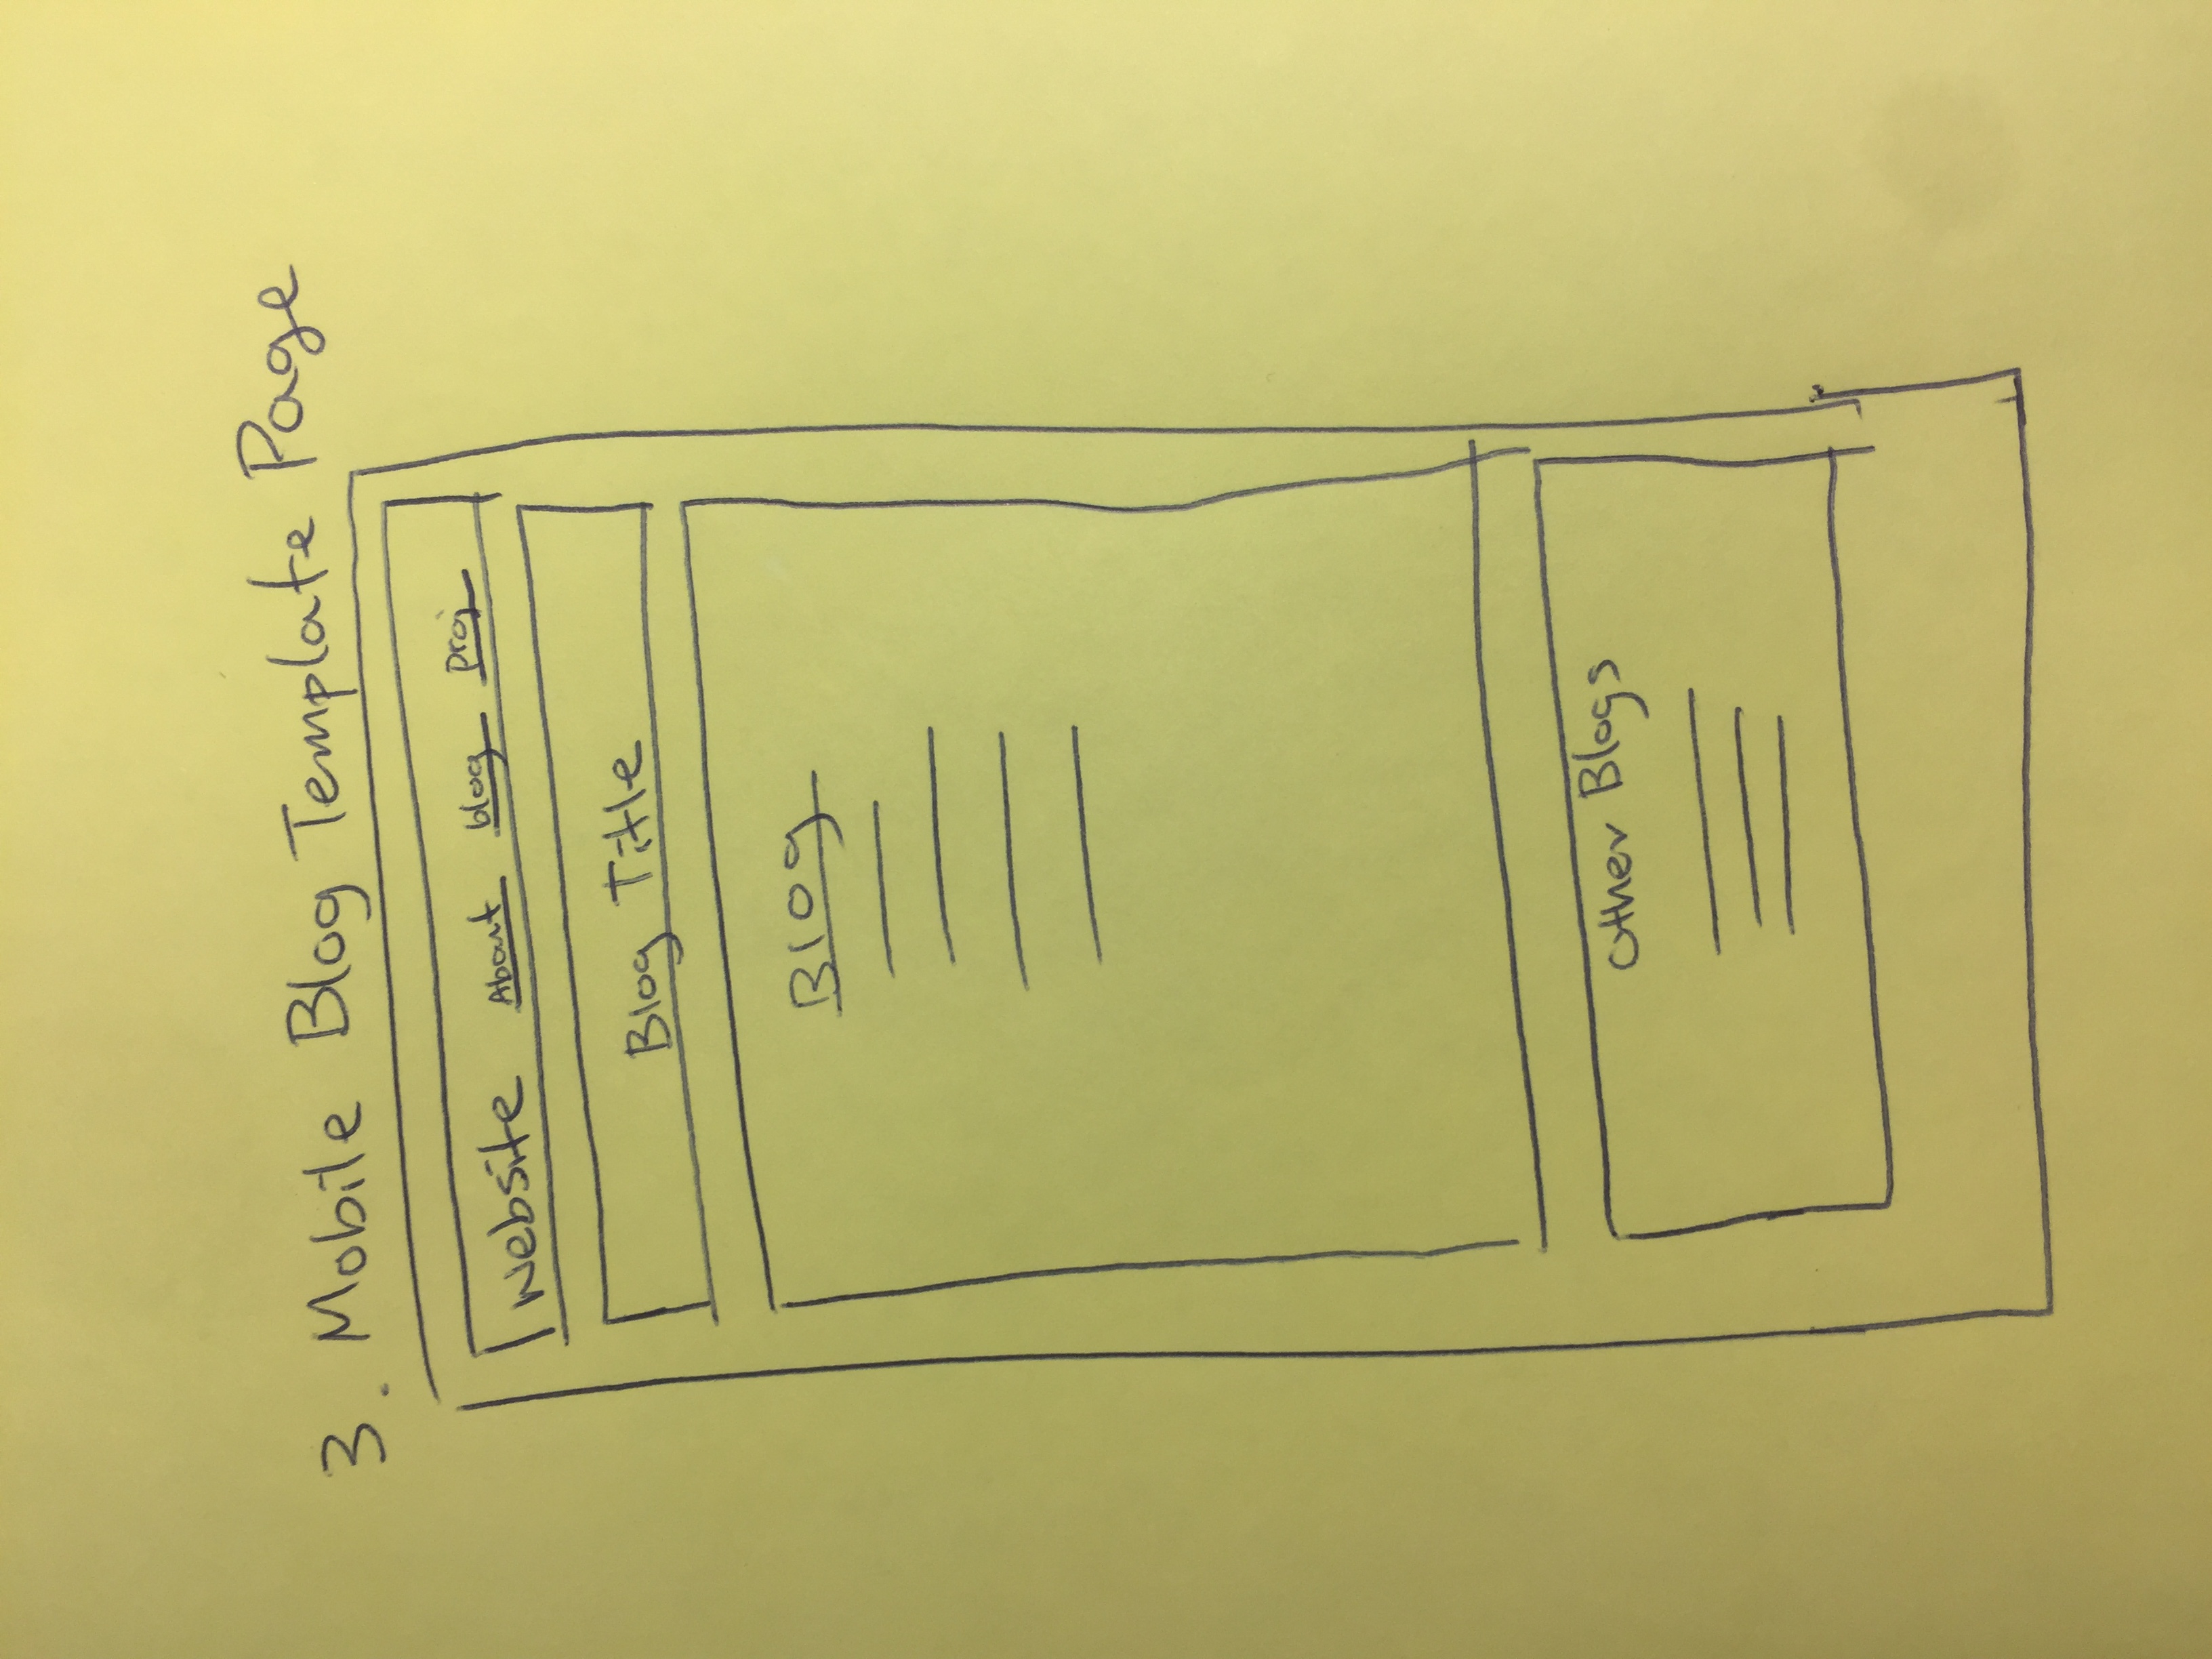 3. Mobile Blog Template Page
Website About blog proj
Blog Title
Blog
Other Blogs